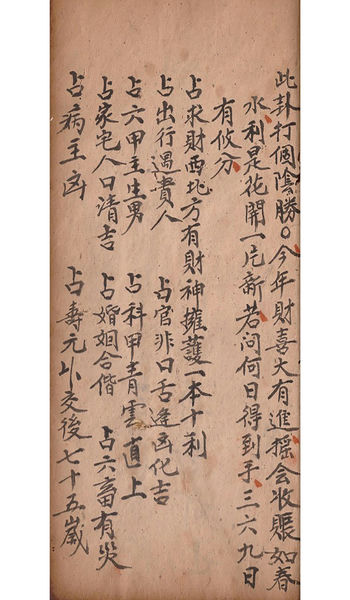 此卦打個陰勝。今年財喜大有進摇会收賬如春
水利是花開一片新若问何日得到手三六九日
有攸分
占求財西北方有財神擁護一本十利
占出行遇貴人 占官非口舌逢凶化吉
占六甲主生男 占科甲青雲直上
占家宅人口清吉 占婚姻合偕 占六畜有災
占病主凶 占壽元小交後七十五歲